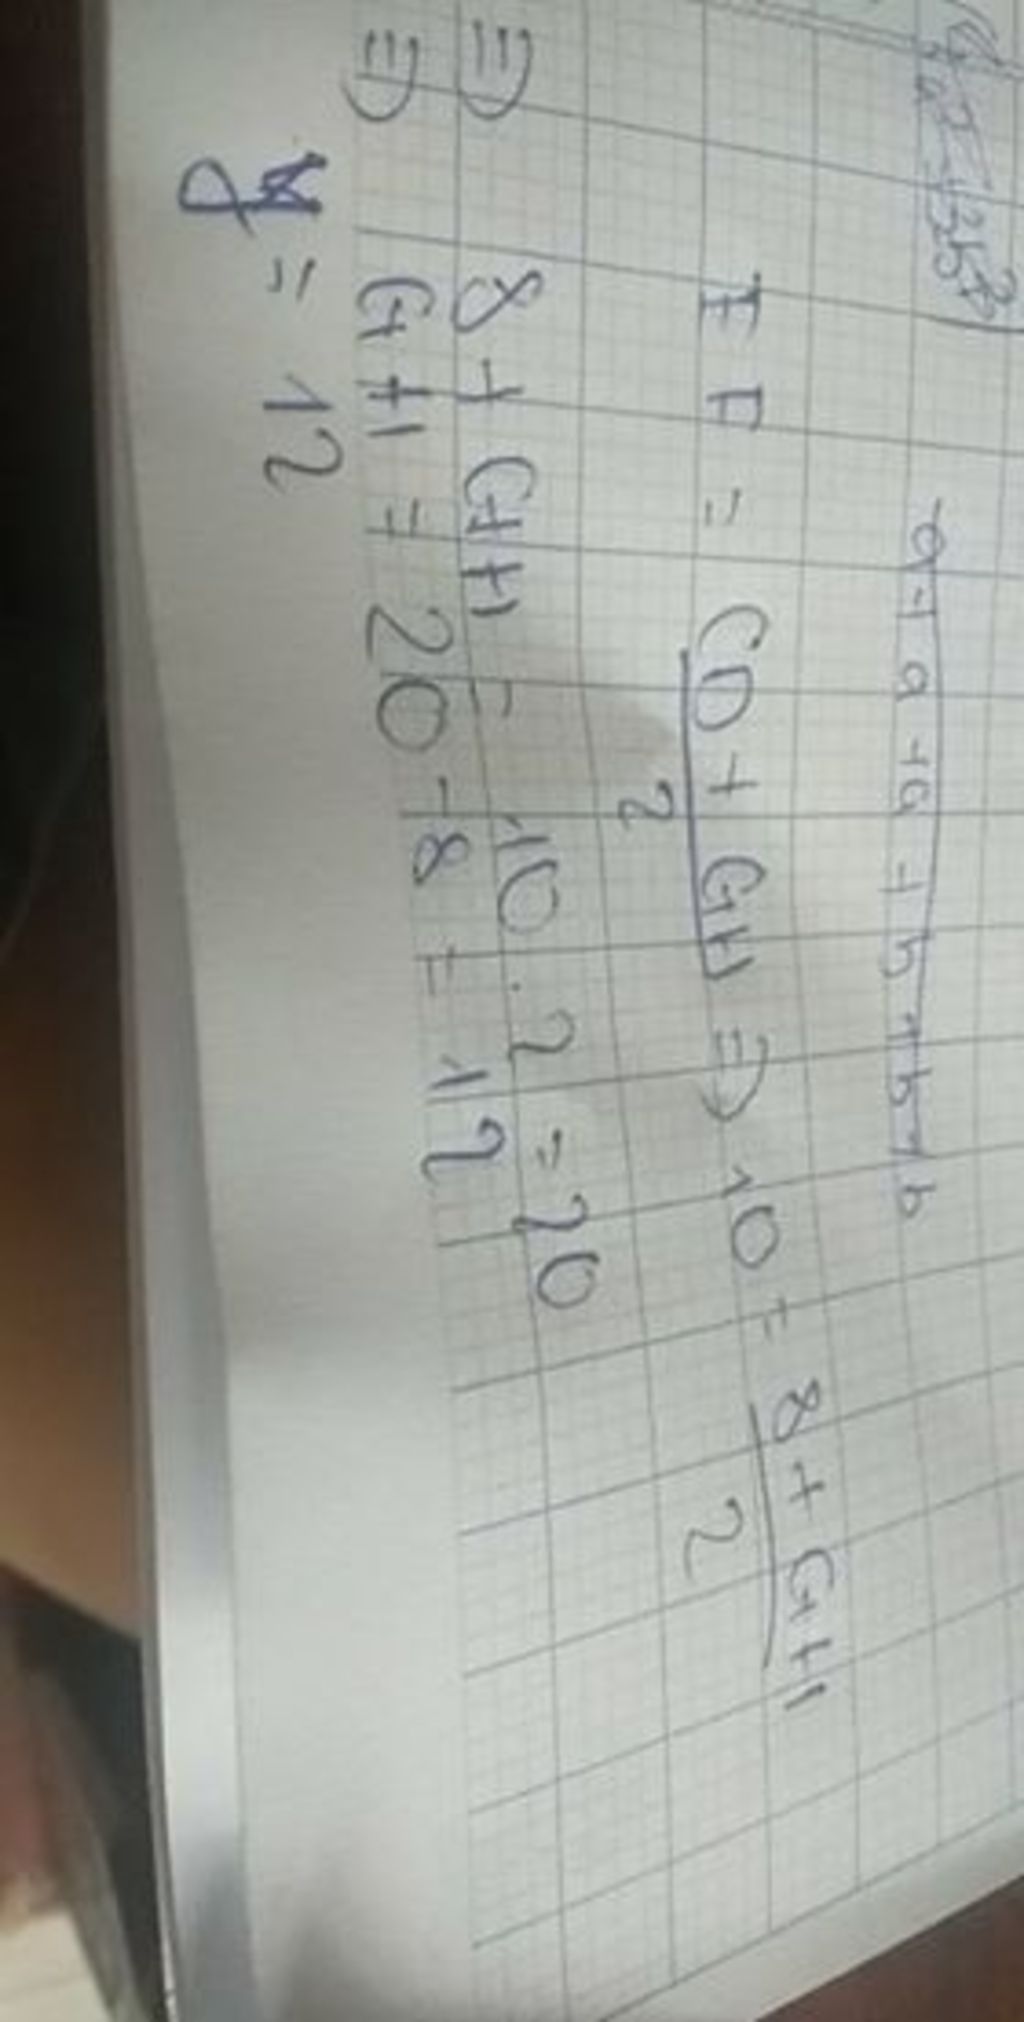 a+a+a+b+b+b
EF = CD + GH / 2 ⇒ 10 = 8 + GH / 2
⇒ 8 + GH = 10 . 2 = 20
⇒ GH = 20 - 8 = 12
y = 12